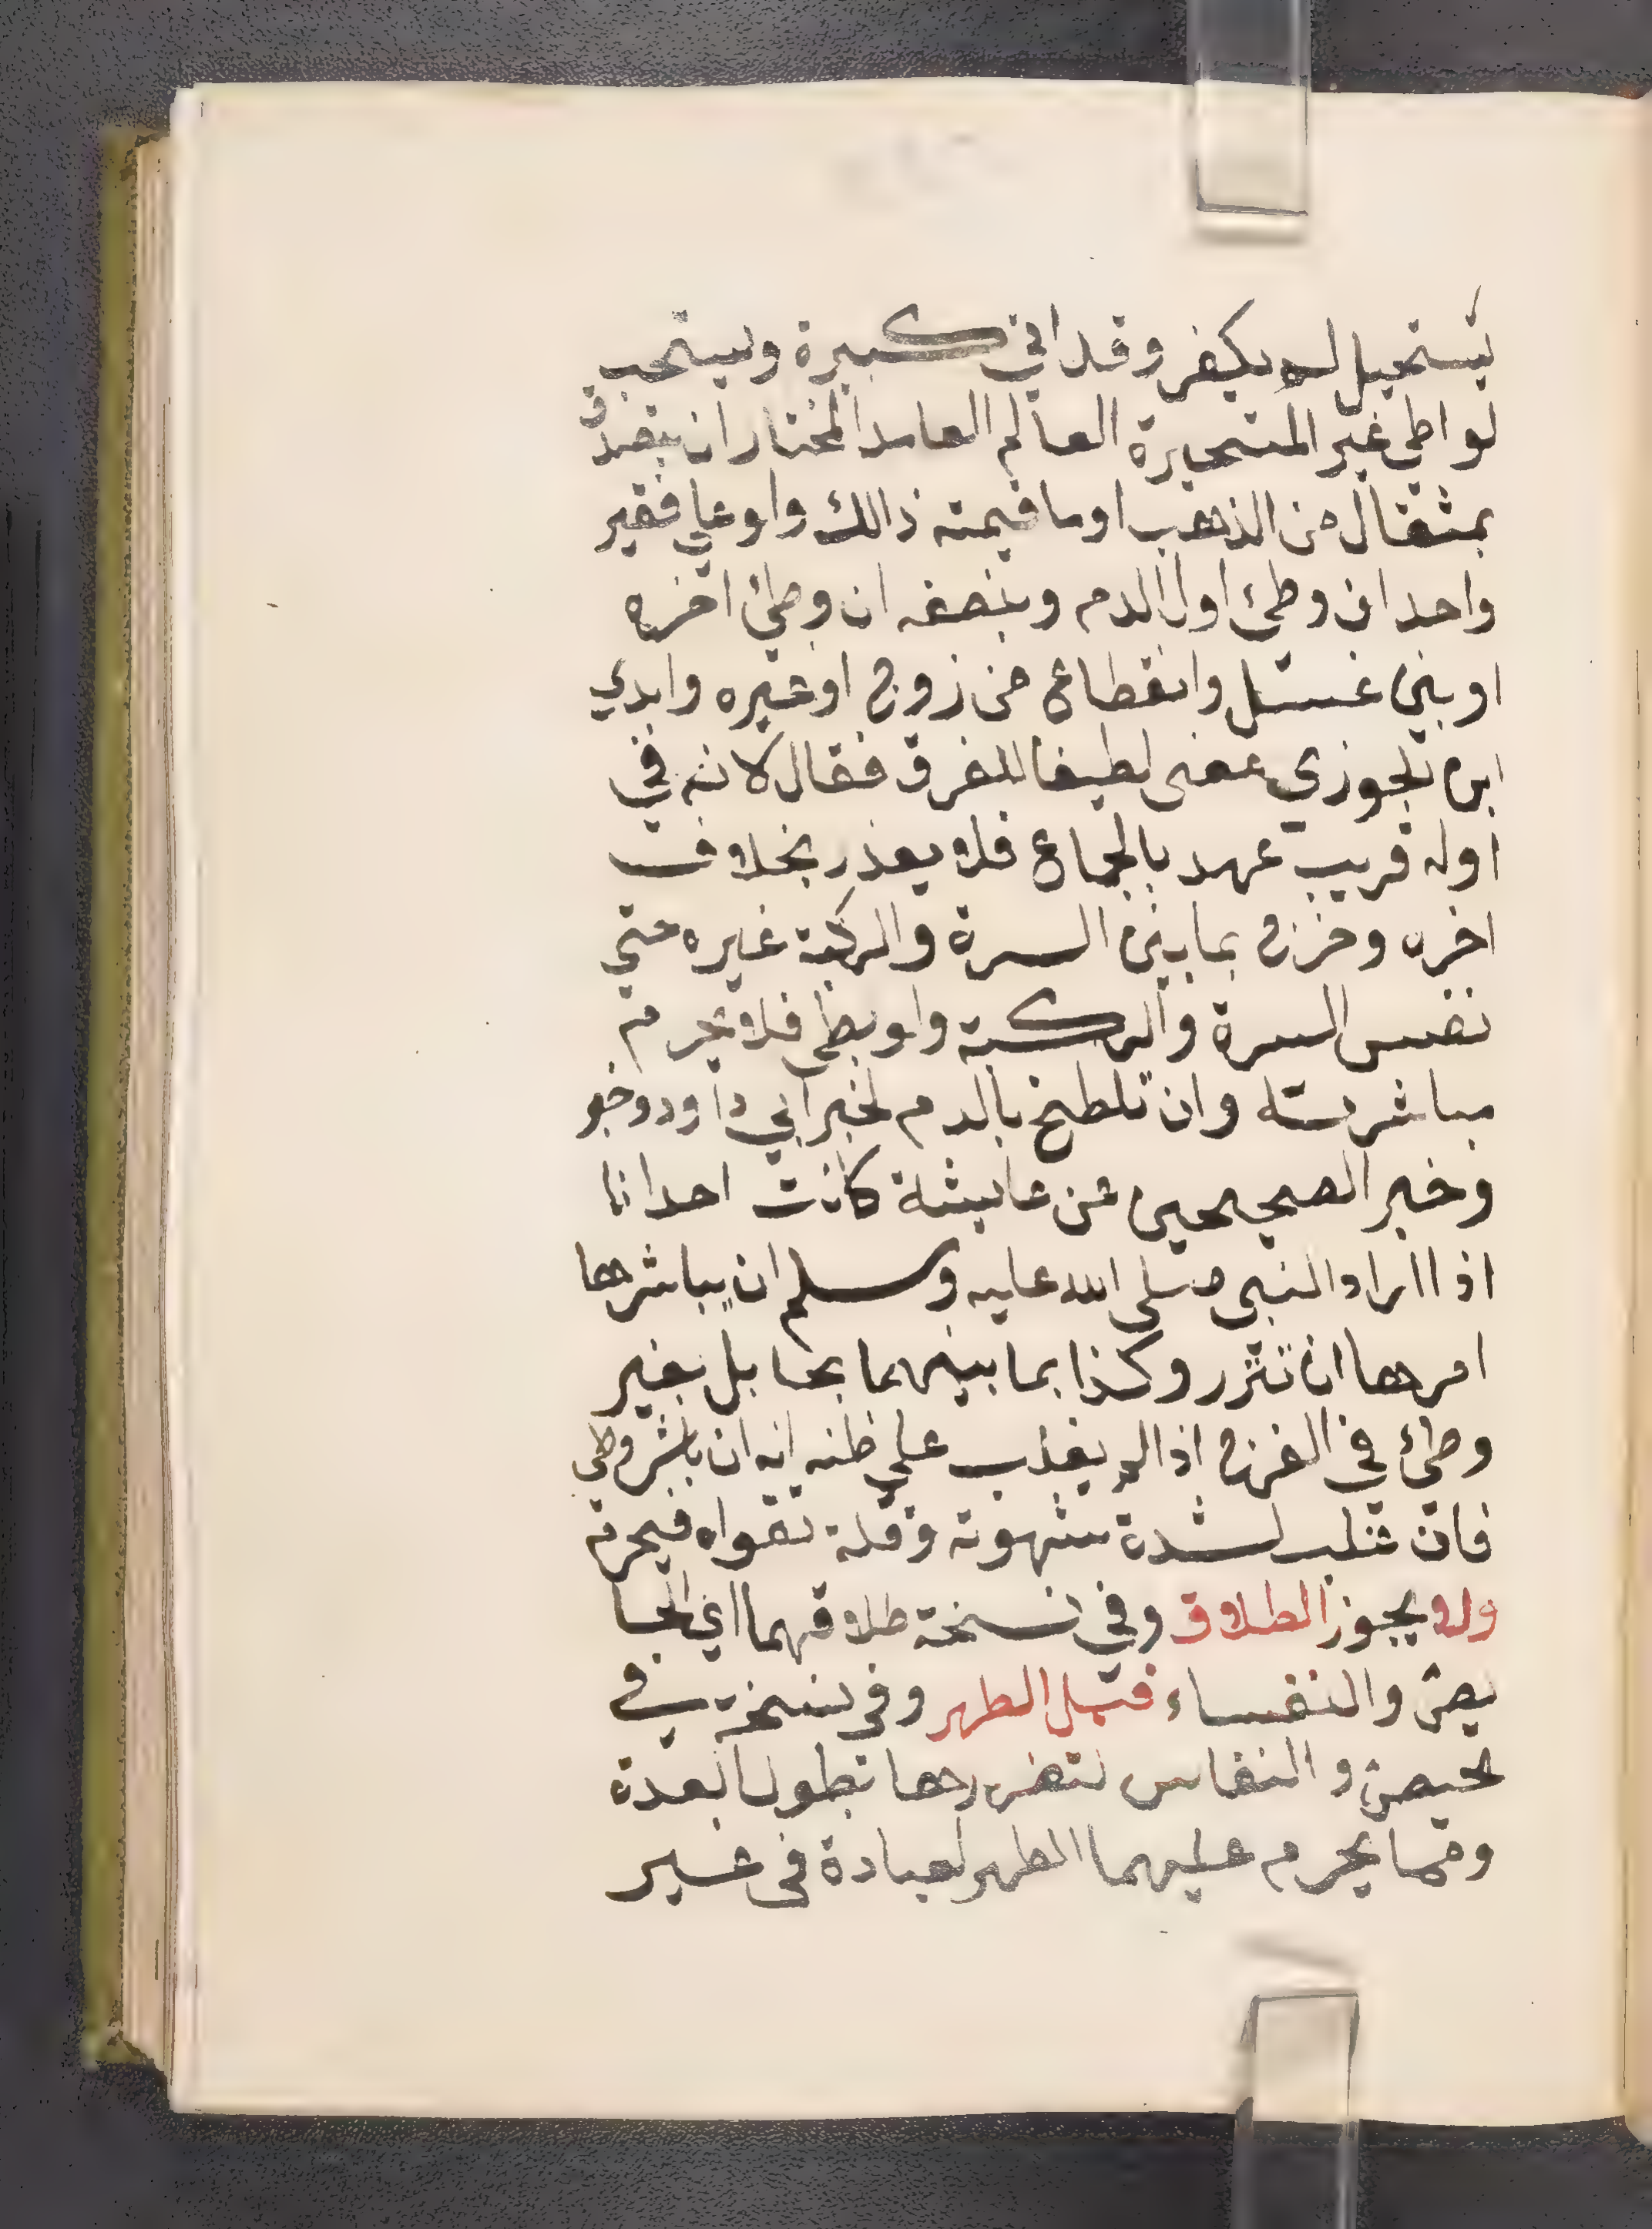 يستحيل له يكفر وقد اتي كبيرة ويستحب
لواطي غير المتحيرة العالم العامد المختار ان يتصدق
بمثقال من الذهب او ما قيمته ذالك ولو علي فقير
واحد ان وطئ اول الدم وبنصفه ان وطئ اخره
او بين غسل وانقطاع من زوج او غيره وابدي
ابن الجوزي معنى لطيفا للفرق فقال لانه في
اوله قريب عهد بالجماع فلا يعذر بخلاف
اخره وخرج بما بين السرة والركبة غيره حتي
نفس السرة والركبة ولو بوطي فلا يحرم
مباشرته وان تلطخ بالدم لخبر ابي داوود وخبر
وخبر الصحيحين عن عايشة كانت احدانا
اذا اراد النبي صلى الله عليه وسلم ان يباشرها
امرها ان تتزر وكذا بما بينهما بحايل بغير
وطئ في الفرج اذا لم يغلب علي ظنه انه ان باشر وطي
فان غلب لشدة شهوته وقلة تقواه فيحرم
ولا يجوز الطلاق وفي نسخة طلاقهما اي الحا
يض والنفساء قبل الطهر وفي نسخة في
لحيض والنفاس لتضررها بطول العدة
ومما يحرم عليهما الطهر لعبادة في غير